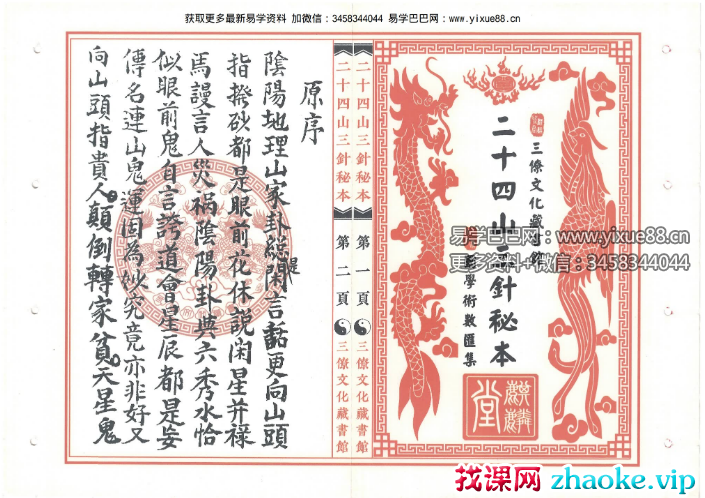 获取更多最新易学资料 加微信：3458344044 易学巴巴网：www.yixue88.cn
三僚文化藏書館
二十四山三針秘本
易學術數匯集
麒麟堂
二十四山三針秘本 第一頁 三僚文化藏書館
二十四山三針秘本 第二頁 三僚文化藏書館
原序
陰陽地理山家卦總是閑言話更向山頭
指撥砂都是眼前花休說闲星并禄
馬謾言人災禍陰陽卦典六秀水恰
似眼前鬼自言誇道會星辰都是妄
傳名連山鬼運因為妙究竟亦非好又
向山頭指貴人顛倒轉家貧天星鬼
易学巴巴网：www.yixue88.cn
更多资料+微信：3458344044
找课网 zhaoke.vip